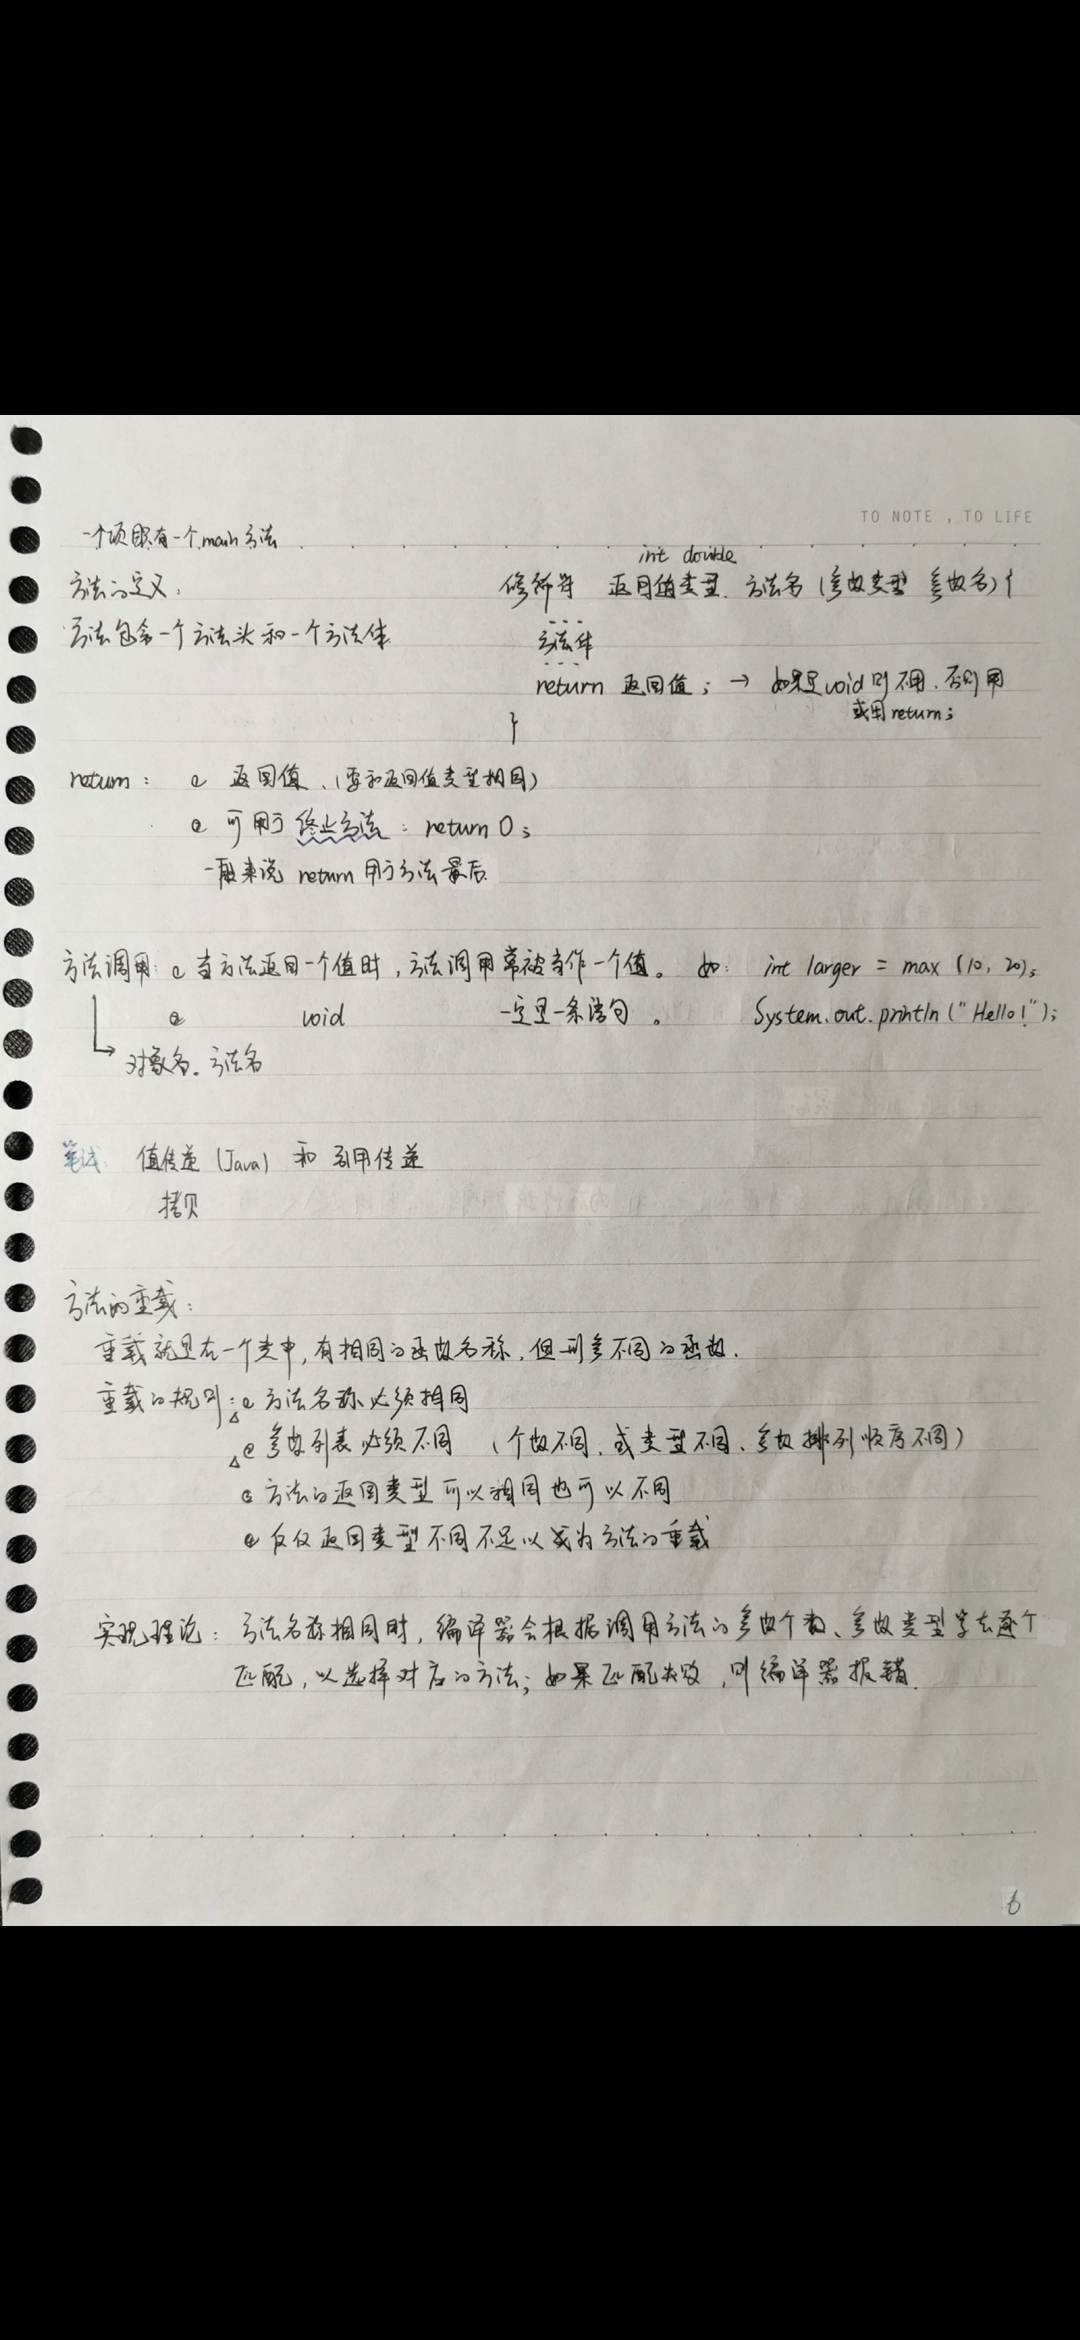 TO NOTE , TO LIFE
一个项目只有一个main方法
int double
方法的定义: 修饰符 返回值类型 方法名(参数类型 参数名){
方法包含一个方法头和一个方法体 方法体
return 返回值; → 如果是void则不用,否则用
或用return;
}
return: 返回值、(要和返回值类型相同)
可用于终止方法: return 0;
一般来说 return 用于方法最后.
方法调用: 当方法返回一个值时,方法调用常被当作一个值。 如: int larger = max (10, 20);
void 一定是一条语句 。 System.out.println("Hello!");
对象名.方法名
笔试: 值传递 (Java) 和 引用传递
拷贝
方法的重载:
重载就是在一个类中,有相同的函数名称,但形参不同的函数.
重载的规则: 方法名称必须相同
参数列表必须不同 (个数不同、或类型不同、参数排列顺序不同)
方法的返回类型可以相同也可以不同
仅仅返回类型不同不足以成为方法的重载
实现理论: 方法名称相同时,编译器会根据调用方法的参数个数、参数类型等去逐个
匹配,以选择对应的方法;如果匹配失败,则编译器报错.
6